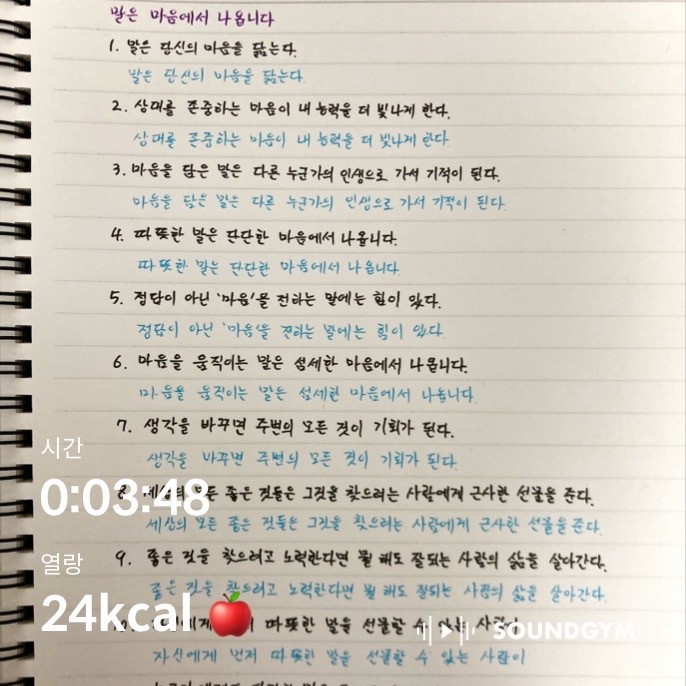 말은 마음에서 나옵니다
1. 말은 당신의 마음을 닮는다.
말은 당신의 마음을 닮는다.
2. 상대를 존중하는 마음이 내 능력을 더 빛나게 한다.
상대를 존중하는 마음이 내 능력을 더 빛나게 한다.
3. 마음을 담은 말은 다른 누군가의 인생으로 가서 기적이 된다.
마음을 담은 말은 다른 누군가의 인생으로 가서 기적이 된다.
4. 따뜻한 말은 단단한 마음에서 나옵니다.
따뜻한 말은 단단한 마음에서 나옵니다.
5. 정답이 아닌 '마음'을 전하는 말에는 힘이 있다.
정답이 아닌 '마음'을 전하는 말에는 힘이 있다.
6. 마음을 움직이는 말은 섬세한 마음에서 나옵니다.
마음을 움직이는 말은 섬세한 마음에서 나옵니다.
7. 생각을 바꾸면 주변의 모든 것이 기회가 된다.
시간
생각을 바꾸면 주변의 모든 것이 기회가 된다.
0:03:48
8. 세상의 모든 좋은 것들은 그것을 찾으려는 사람에게 근사한 선물을 준다.
세상의 모든 좋은 것들은 그것을 찾으려는 사람에게 근사한 선물을 준다.
9. 좋은 것을 찾으려고 노력한다면 뭘 해도 잘되는 사람의 삶을 살아간다.
열량
좋은 것을 찾으려고 노력한다면 뭘 해도 잘되는 사람의 삶을 살아간다.
24kcal
따뜻한 말을 선물할 수 있는 사람이
SOUNDGYM
자신에게 먼저 따뜻한 말을 선물할 수 있는 사람이